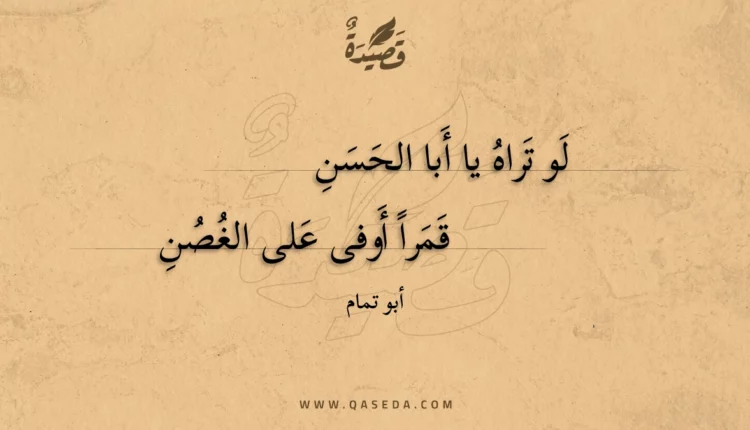 قَصِيدَةٌ
لَو تَراهُ يا أَبا الحَسَنِ
قَمَراً أَوفى عَلى الغُصُنِ
أبو تمام
WWW.QASEDA.COM